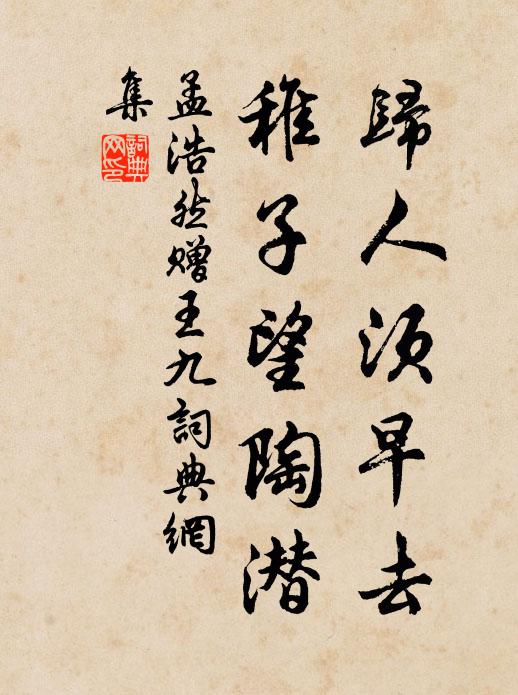 歸人須早去
稚子望陶潜
孟浩然赠王九詞典網
集
詞典
网印